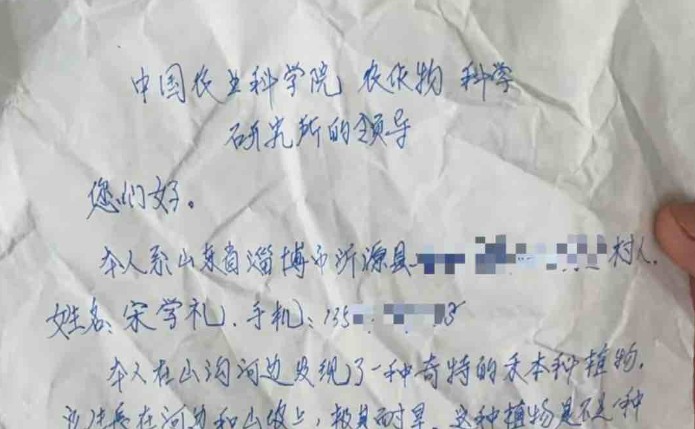 中国农业科学院 农作物 科学
研究所的领导
您们好。
本人系山东省淄博市沂源县 村人.
姓名:宋学礼.手机:135 8
本人在山沟河边发现了一种奇特的禾本种植物.
长在河边和山坡上,极其耐旱。这种植物是不是种